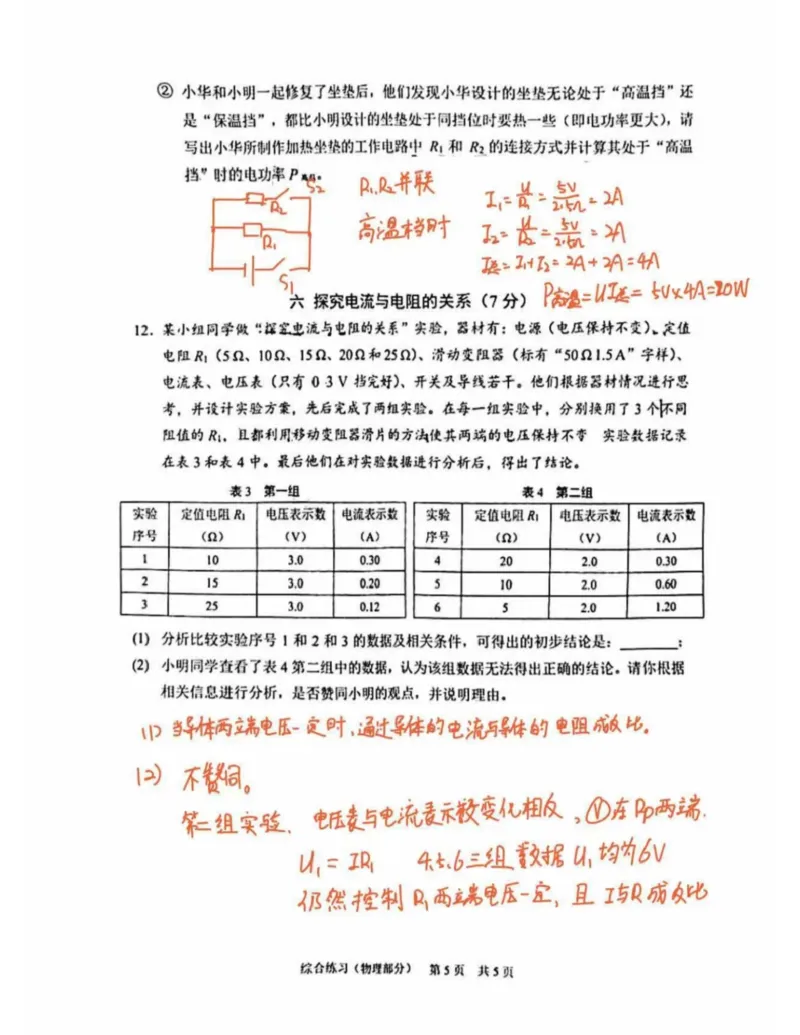 ② 小华和小明一起修复了坐垫后，他们发现小华设计的坐垫无论处于“高温挡”还
是“保温挡”，都比小明设计的坐垫处于同挡位时要热一些（即电功率更大），请
写出小华所制作加热坐垫的工作电路中 R₁ 和 R₂ 的连接方式并计算其处于“高温
挡”时的电功率 P高温。
R₁、R₂并联
高温档时
I₁=U/R₁=5V/2.5Ω=2A
I₂=U/R₂=5V/2.5Ω=2A
I总=I₁+I₂=2A+2A=4A
P高温=UI总=5V×4A=20W
S₂
R₂
R₁
S₁
六 探究电流与电阻的关系（7 分）
12. 某小组同学做“探究电流与电阻的关系”实验，器材有：电源（电压保持不变）、定值
电阻 R₁（5Ω、10Ω、15Ω、20Ω和25Ω）、滑动变阻器（标有“50Ω1.5A”字样）、
电流表、电压表（只有 0 3 V 挡完好）、开关及导线若干。他们根据器材情况进行思
考，并设计实验方案，先后完成了两组实验。在每一组实验中，分别换用了 3 个不同
阻值的 R₁，且都利用移动变阻器滑片的方法使其两端的电压保持不变 实验数据记录
在表 3 和表 4 中。最后他们在对实验数据进行分析后，得出了结论。
表 3 第一组
实验序号 定值电阻 R₁（Ω） 电压表示数（V） 电流表示数（A）
1 10 3.0 0.30
2 15 3.0 0.20
3 25 3.0 0.12
表 4 第二组
实验序号 定值电阻 R₁（Ω） 电压表示数（V） 电流表示数（A）
4 20 2.0 0.30
5 10 2.0 0.60
6 5 2.0 1.20
(1) 分析比较实验序号 1 和 2 和 3 的数据及相关条件，可得出的初步结论是：______；
(2) 小明同学查看了表 4 第二组中的数据，认为该组数据无法得出正确的结论。请你根据
相关信息进行分析，是否赞同小明的观点，并说明理由。
(1) 当导体两端电压一定时，通过导体的电流与导体的电阻成反比。
(2) 不赞同。
第二组实验、电压表与电流表示数变化相反，Ⓥ在Rp两端.
U₁=IR₁ 4.5.6三组数据U₁均为6V
仍然控制R₁两端电压一定，且I与R成反比
综合练习（物理部分） 第5页 共5页